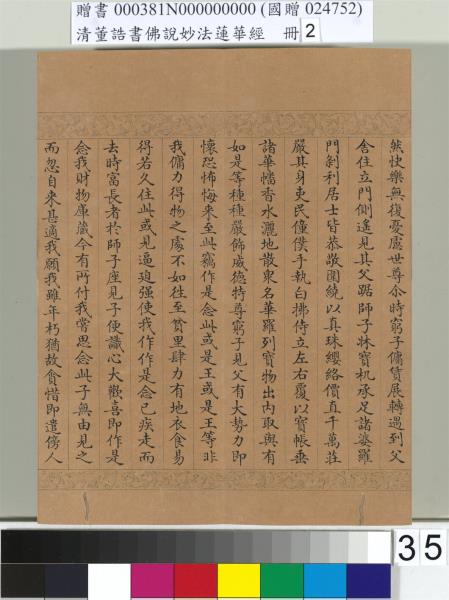 贈書 000381N000000000 (國贈 024752)
清董誥書佛說妙法蓮華經 冊 2
然快樂無復憂慮世尊尒時窮子傭賃展轉遇到父
舍住立門側遙見其父踞師子牀寶机承足諸婆羅
門剎利居士皆恭敬圍繞以真珠纓絡價直千萬莊
嚴其身吏民僮僕手執白拂侍立左右覆以寶帳垂
諸華幡香水灑地散眾名華羅列寶物出內取與有
如是等種種嚴飾威德特尊窮子見父有大勢力即
懷恐怖悔來至此竊作是念此或是王或是王等非
我傭力得物之處不如往至貧里肆力有地衣食易
得若久住此或見逼迫強使我作作是念已疾走而
去時富長者於師子座見子便識心大歡喜即作是
念我財物庫藏今有所付我常思念此子無由見之
而忽自來甚適我願我雖年朽猶故貪惜即遣傍人
35